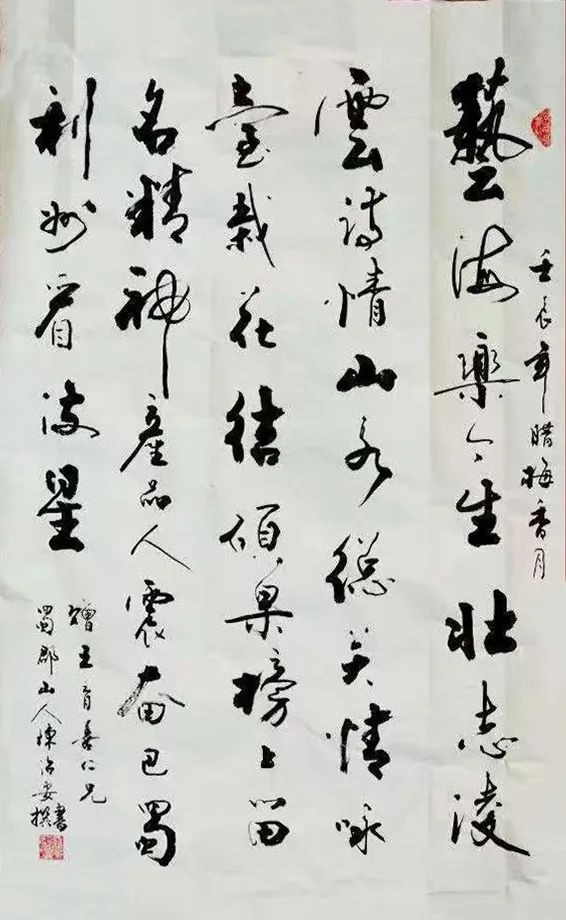 壬辰年腊梅香月
藝海樂今生壯志凌
雲詩情山水總关情咏
臺栽花结碩果榜上留
名精神產品人震奋巴蜀
利州看星
贈王育喜仁兄
蜀郡山人陳治安撰書